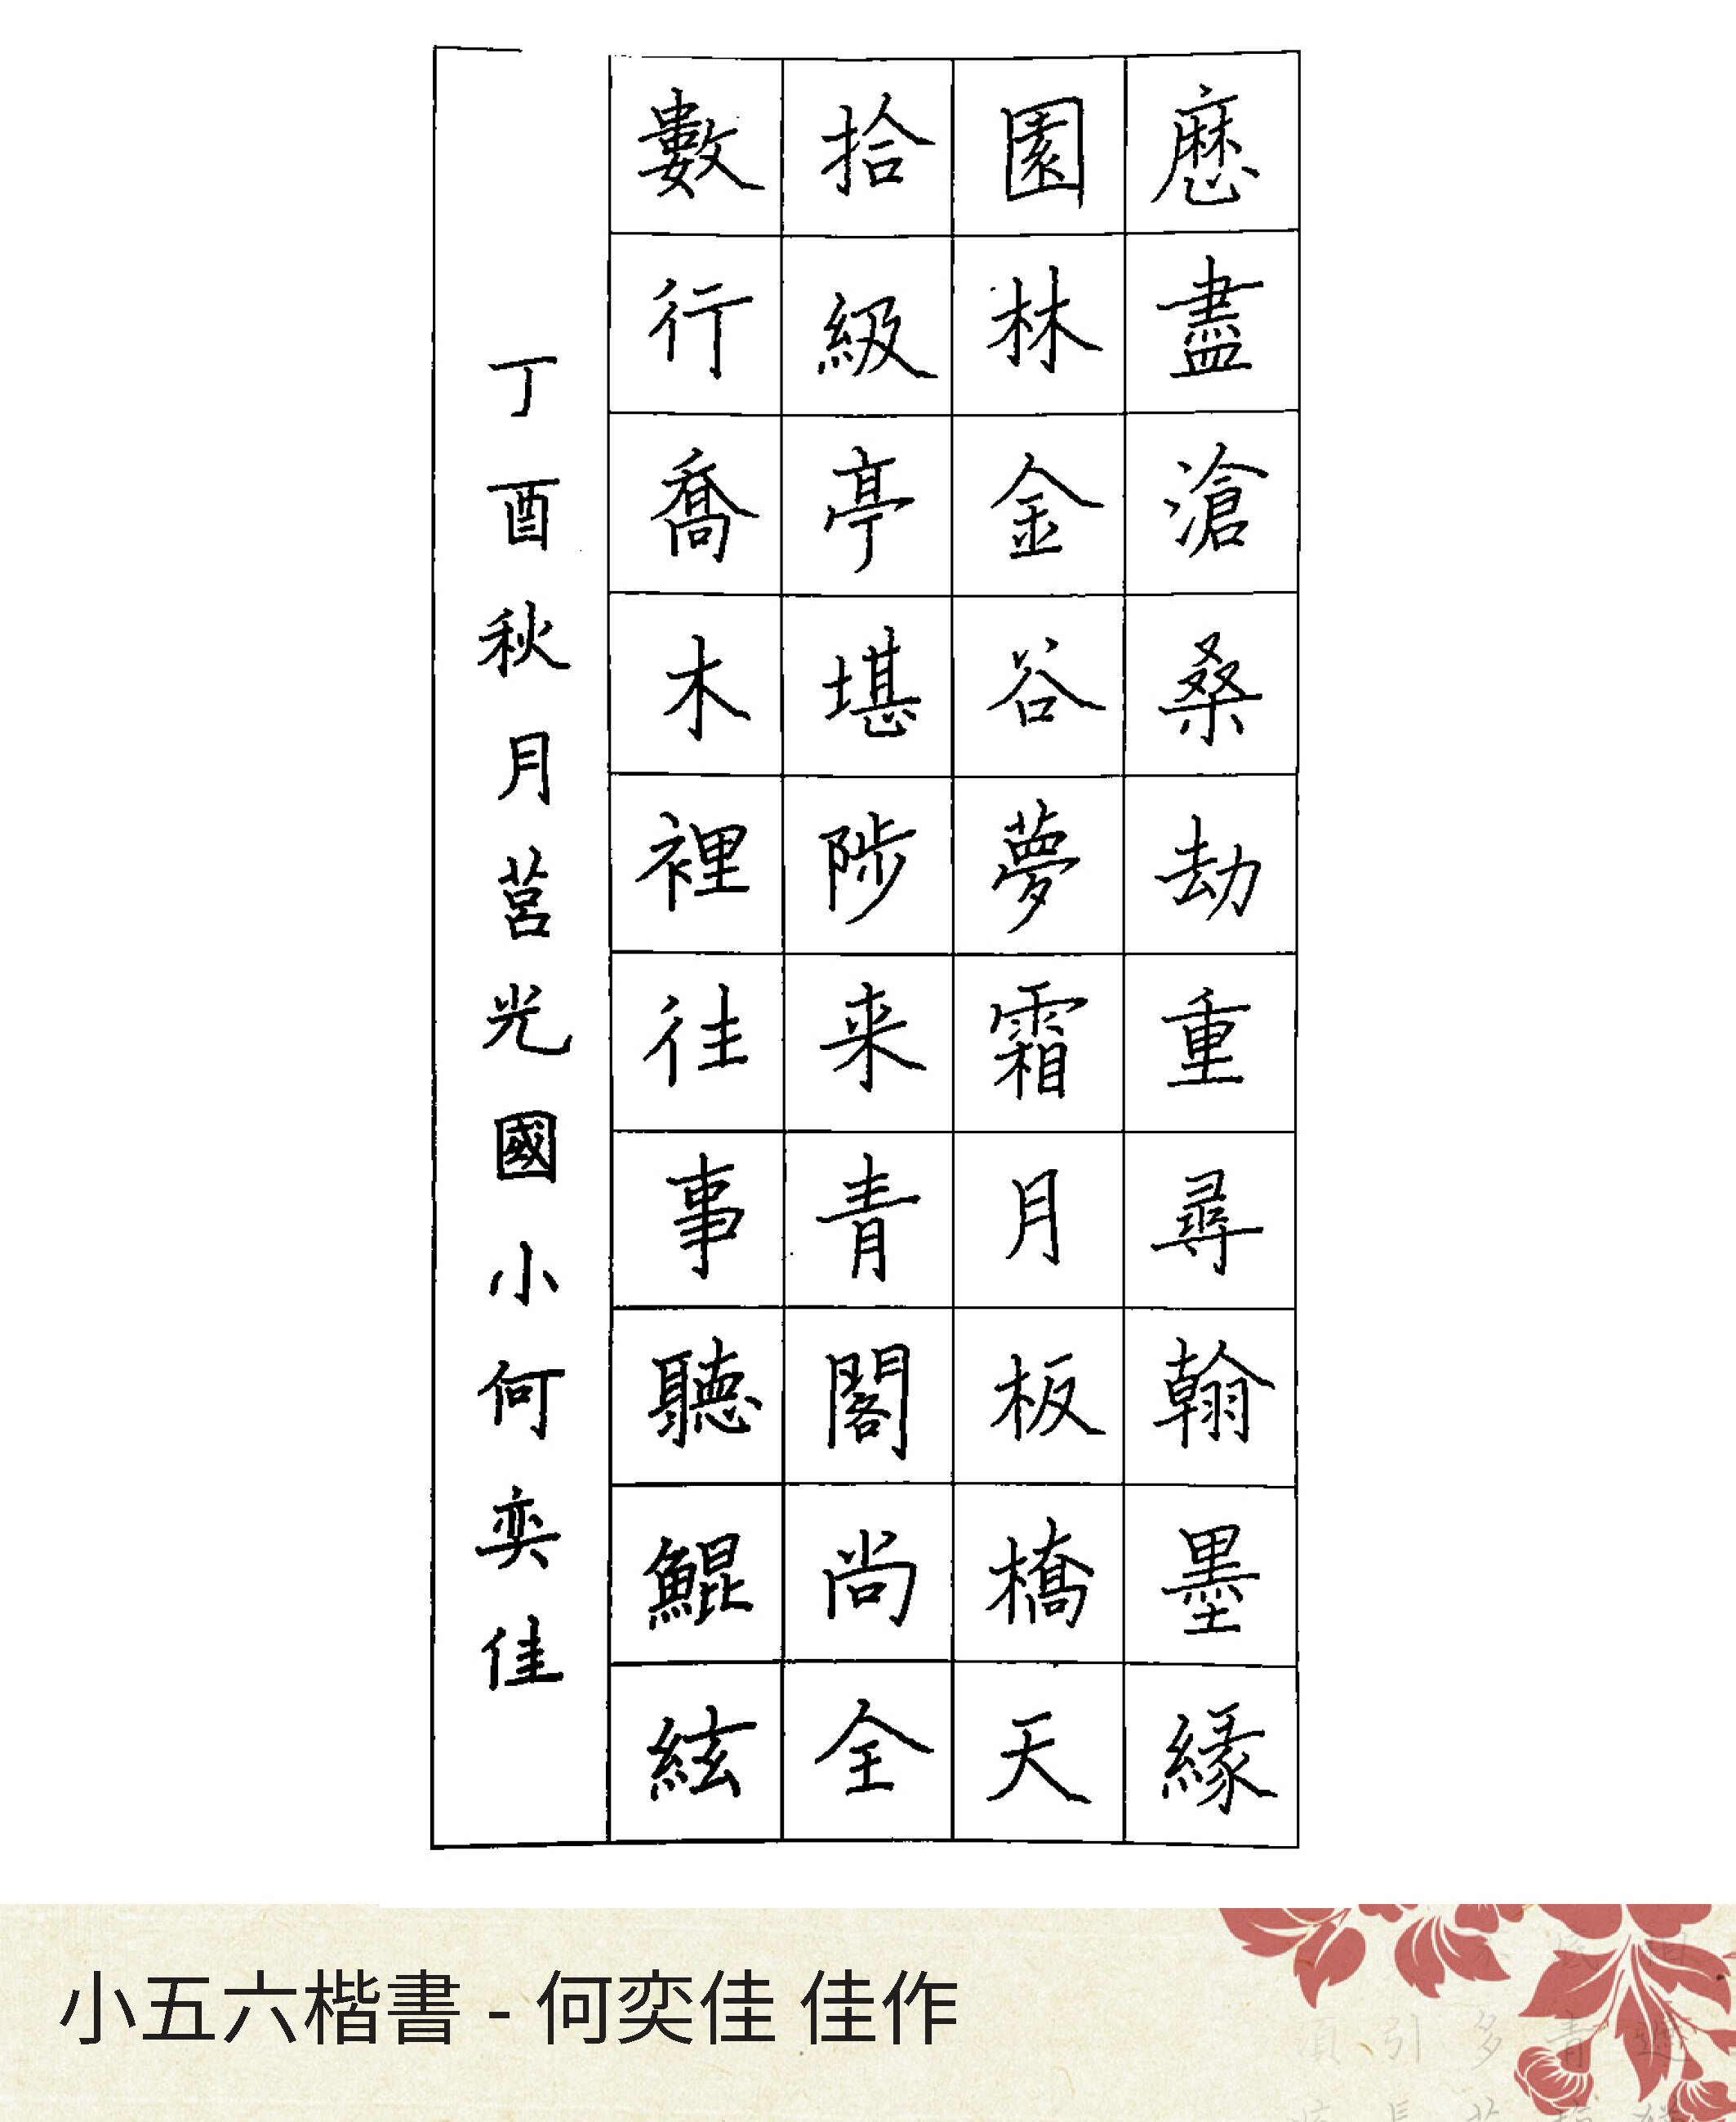 歷盡滄桑劫重尋翰墨緣
園林金谷夢霜月板橋天
拾級亭堪陟来青閣尚全
數行喬木裡往事聽鯤絃
丁酉秋月莒光國小何奕佳
小五六楷書 - 何奕佳 佳作